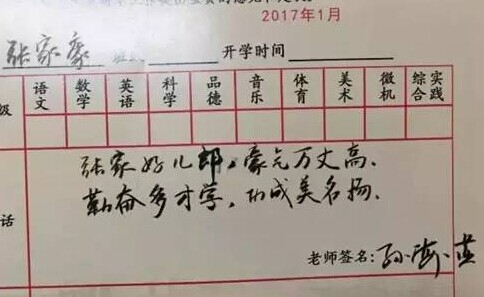 2017年1月
张家豪 开学时间
级 语文 数学 英语 科学 品德 音乐 体育 美术 微机 综合实践
张家好儿郎,豪气万丈高,
话 勤奋多才学,功成美名扬.
老师签名:孙海燕